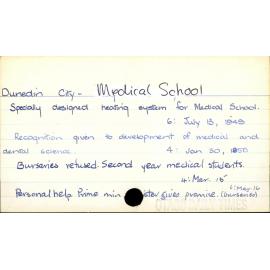 Dunedin City - Medical School
Specially designed heating system for Medical School.
6: July 13, 1949
Recognition given to development of medical and
dental science. 4: Jan 30, 1950
Bursaries refused. Second year medical students.
4: Mar. 15
Personal help Prime min ster gives promise. (bursaries)
6: Mar. 16
TIMES